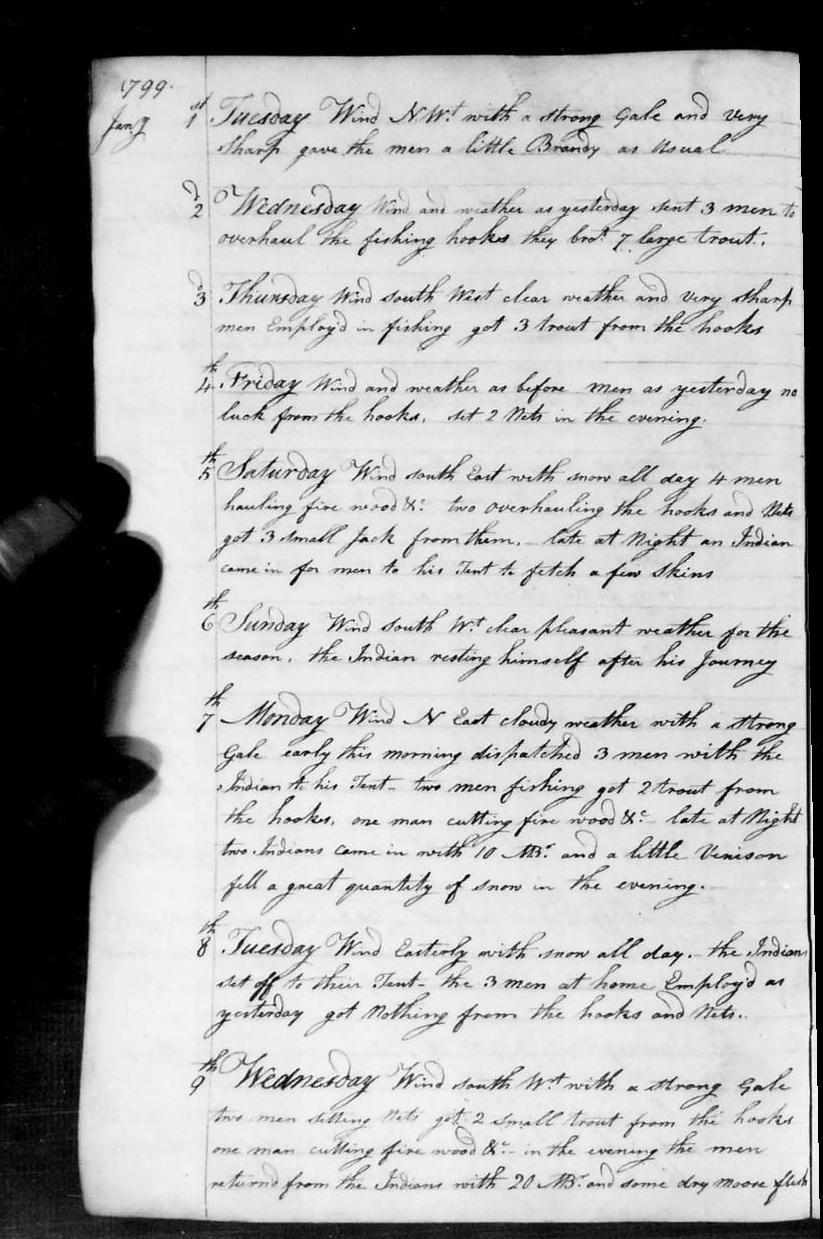 1799.
Jany 1st Tuesday Wind N Wt with a strong Gale and very
sharp gave the men a little Brandy as Usual
2d Wednesday Wind and weather as yesterday sent 3 men to
overhaul the fishing hooks they brot 7 large trout.
3d Thursday Wind south West clear weather and very sharp
men Employ'd in fishing got 3 trout from the hooks
4th Friday Wind and weather as before men as yesterday no
luck from the hooks, set 2 Nets in the evening.
5th Saturday Wind south East with snow all day 4 men
hauling fire wood &c two overhauling the hooks and Nets
got 3 small Jack from them. - late at Night an Indian
came in for men to his Tent to fetch a few skins
6th Sunday Wind south Wt clear pleasant weather for the
season, the Indian resting himself after his Journey
7th Monday Wind N East cloudy weather with a strong
Gale early this morning dispatched 3 men with the
Indian to his Tent - two men fishing got 2 trout from
the hooks, one man cutting fire wood &c - late at Night
two Indians came in with 10 MBr and a little Venison
fell a great quantity of snow in the evening.
8th Tuesday Wind Easterly with snow all day. - the Indians
set off to their Tent - the 3 men at home Employ'd as
yesterday got Nothing from the hooks and Nets.
9th Wednesday Wind south Wt with a strong Gale
two men setting Nets got 2 small trout from the hooks
one man cutting fire wood &c - in the evening the men
returnd from the Indians with 20 MBr and some dry moose flesh